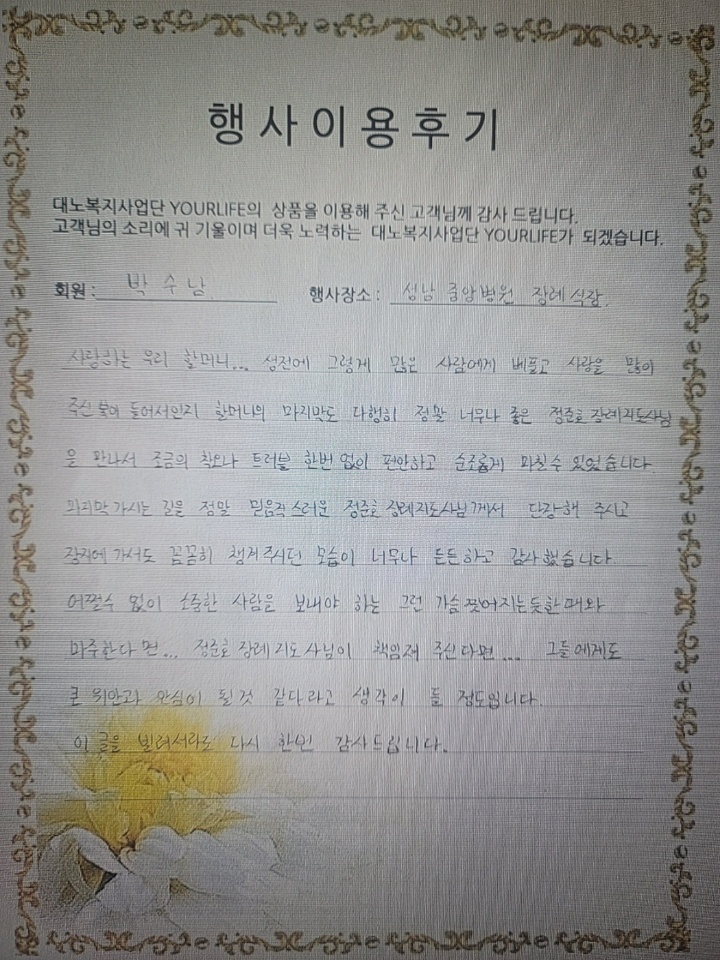 행사이용후기
대노복지사업단 YOURLIFE의 상품을 이용해 주신 고객님께 감사 드립니다.
고객님의 소리에 귀 기울이며 더욱 노력하는 대노복지사업단 YOURLIFE가 되겠습니다.
회원 : 박수남 행사장소 : 성남 중앙병원 장례식장.
사랑하는 우리 할머니... 성전에 그렇게 많은 사람에게 베풀고 사랑을 많이
주신 분이 들어서인지 할머니의 마지막도 다행히 정말 너무나 좋은 정준호 장례지도사님
을 만나서 조금의 착오나 트러블 한번 없이 편안하고 순조롭게 마칠수 있었습니다.
마지막 가시는 길을 정말 믿음직스러운 정준호 장례지도사님께서 단장해 주시고
장지에 가서도 꼼꼼히 챙겨주시던 모습이 너무나 든든하고 감사했습니다.
어쩔수 없이 소중한 사람을 보내야 하는 그런 가슴 찢어지는듯한 때와
마주한다면... 정준호 장례지도사님이 책임져 주신다면... 그들에게도
큰 위안과 안심이 될것 같다라고 생각이 들 정도입니다.
이 글을 빌려서라도 다시 한번 감사드립니다.